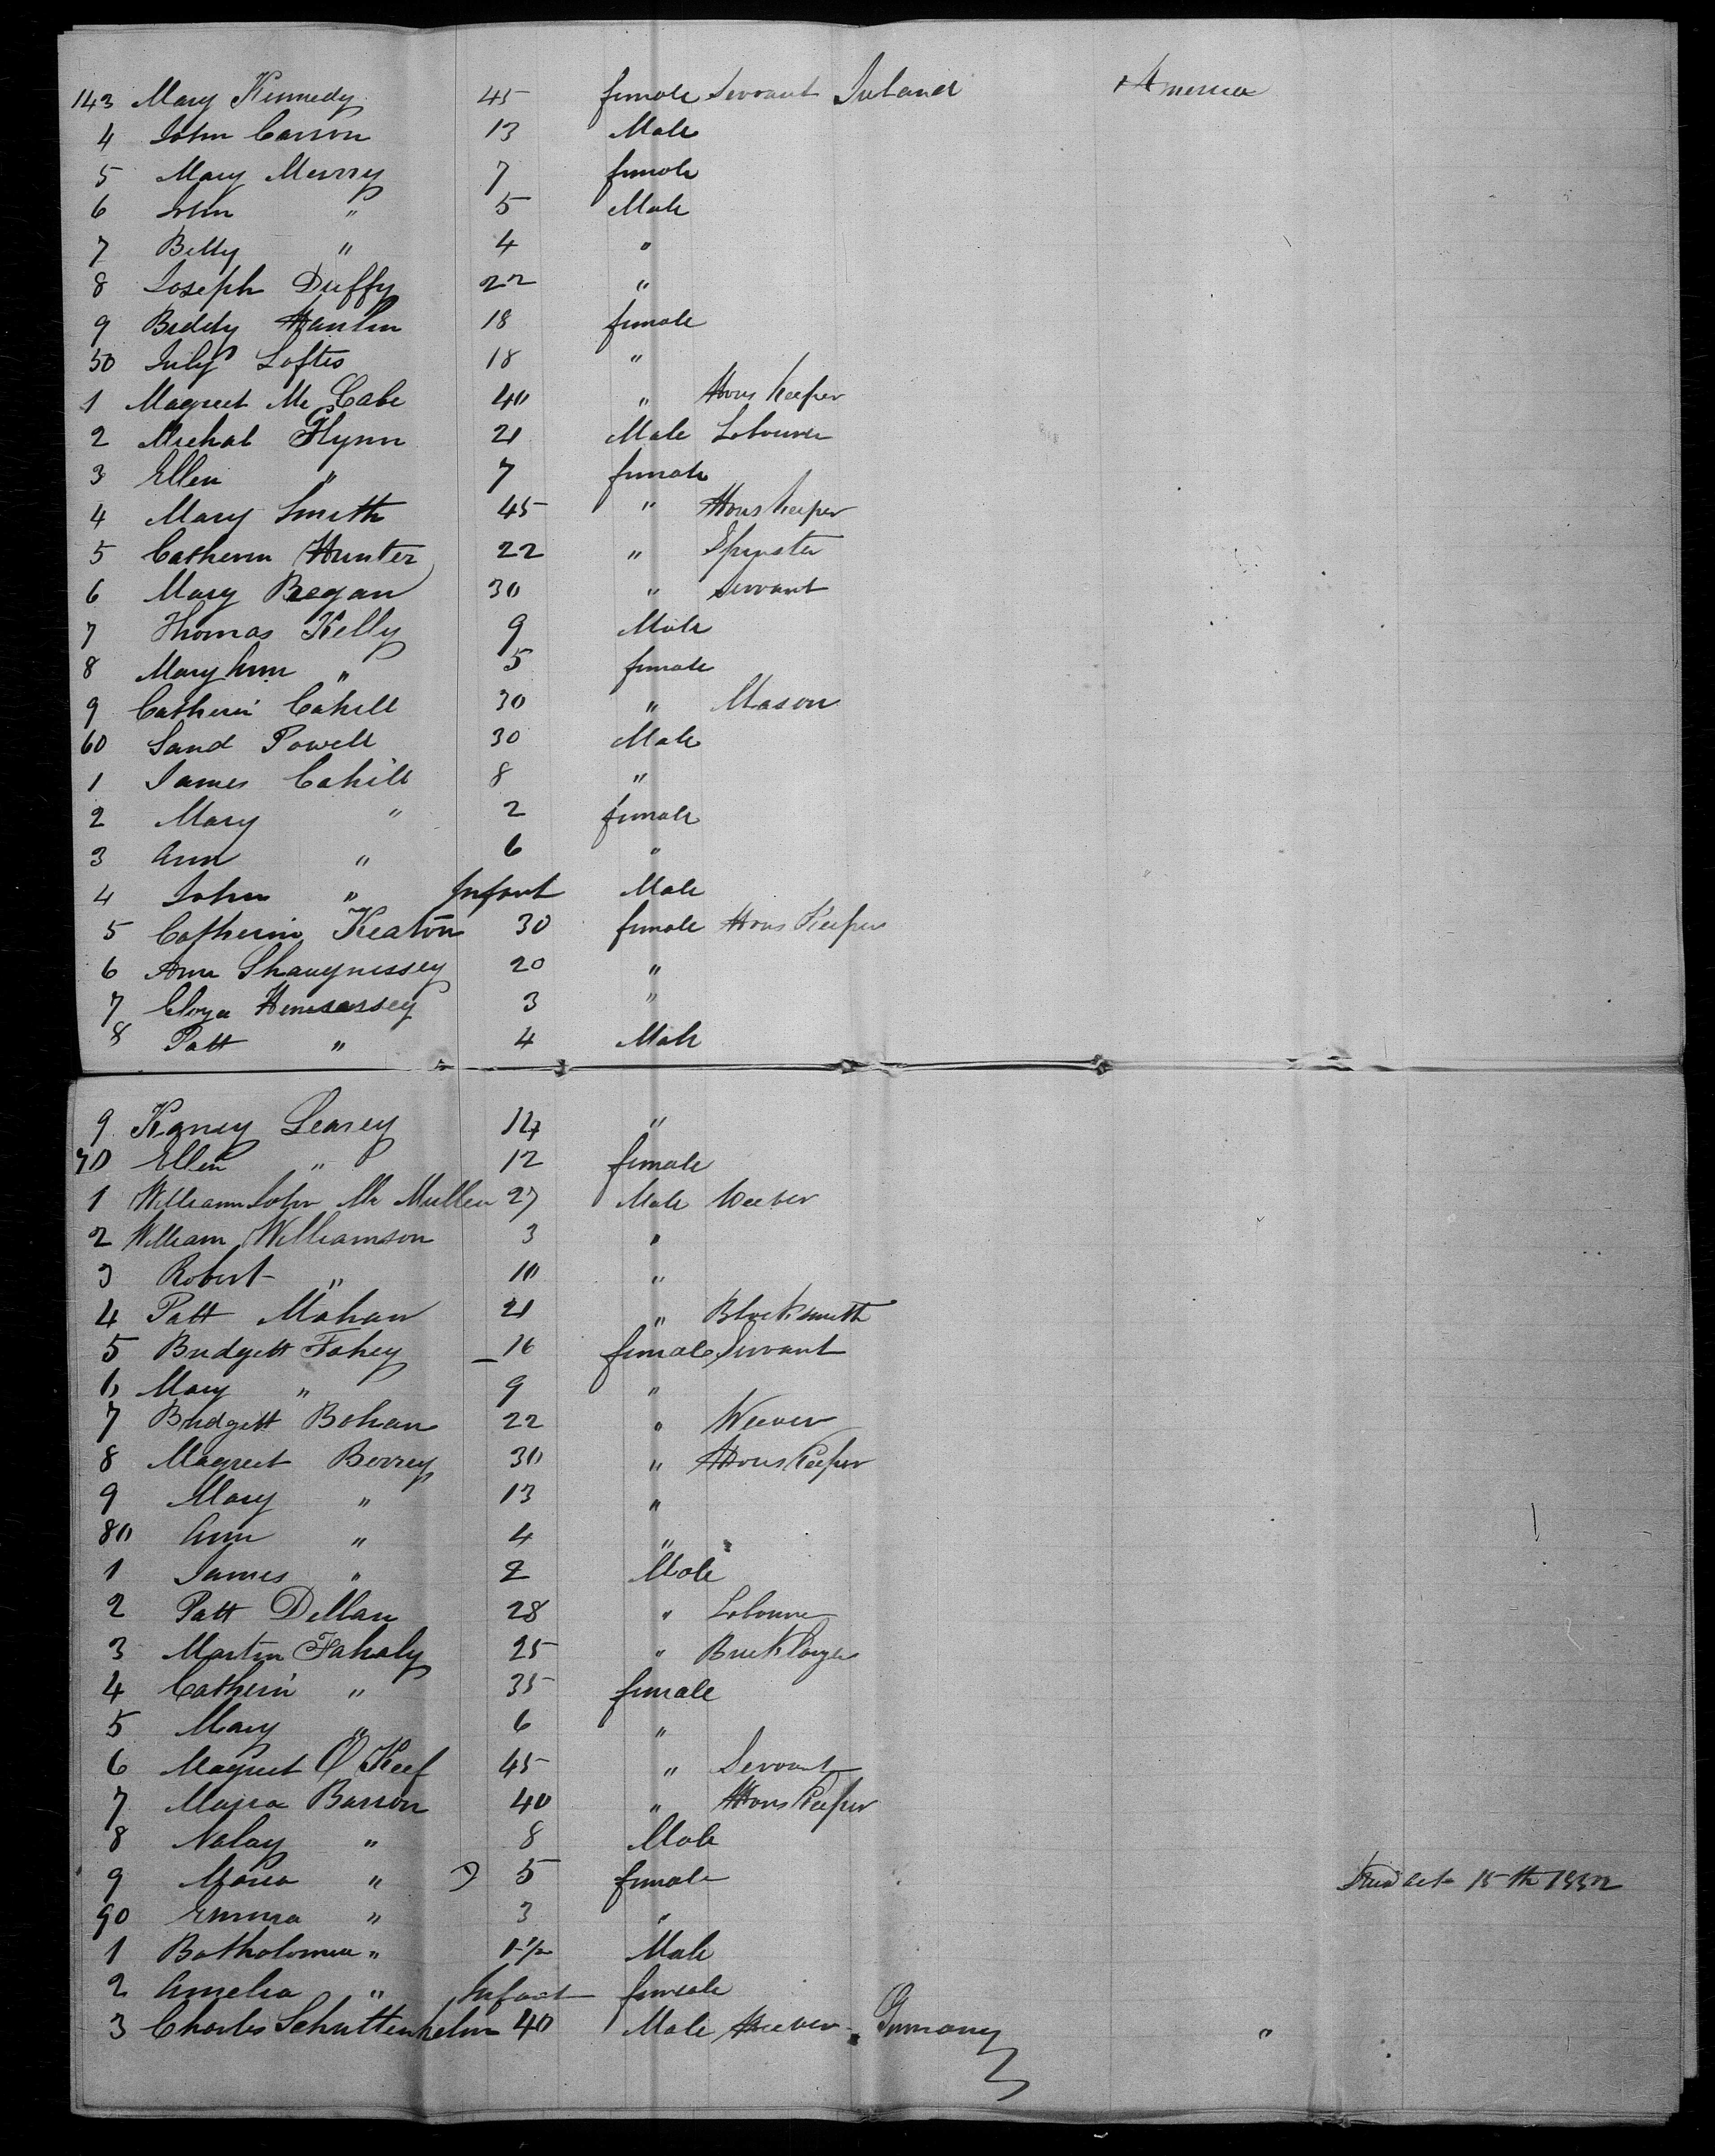 143 Mary Kennedy 45 female Servant Ireland America
4 John Carron 13 Male
5 Mary Murry 7 female
6 John " 5 Male
7 Billy " 4 "
8 Joseph Duffy 22 "
9 Biddy Hanlin 18 female
50 July Loftes 18 "
1 Magreet Mc Cabe 40 " Hous keeper
2 Michal Flynn 21 Male Labourer
3 Ellen " 7 female
4 Mary Smith 45 " Hous keeper
5 Catherin Hunter 22 " Spinster
6 Mary Began 30 " Servant
7 Thomas Kelly 9 Male
8 Mary Ann " 5 female
9 Catherin Cahill 30 " Mason
60 Sand Powell 30 Male
1 James Cahill 8 "
2 Mary " 2 female
3 Ann " 6 "
4 John " Infant Male
5 Catherin Keaton 30 female Hous Keeper
6 Ann Shaugnissey 20 "
7 3 "
8 Patt " 4 Male
9 Learey 14 "
70 Ellen " 12 female
1 William John Mc Mullen 27 Male Weever
2 William Williamson 3 "
3 Robert " 10 "
4 Patt Mahan 21 " Blacksmith
5 Bridgett Fahey 16 female Servant
6 Mary " 9 "
7 Bridgett Bohan 22 " Weever
8 Magreet Berrey 30 " Hous Keeper
9 Mary " 13 "
80 Ann " 4 "
1 James " 2 Male
2 Patt Dellan 28 " Labourer
3 Martin Fahaly 25 " Bricklayer
4 Catherin " 35 female
5 Mary " 6 "
6 Magreet O Keef 45 " Servant
7 Maria Barron 40 " Hous Keeper
8 Nalay " 8 Male
9 Maria " 5 female Died Oct 15th 1852
90 Emma " 3 "
1 Batholomew " 1 1/2 Male
2 Amelia " Infant female
3 Charles Schuttenhelm 40 Male Weever Germany "